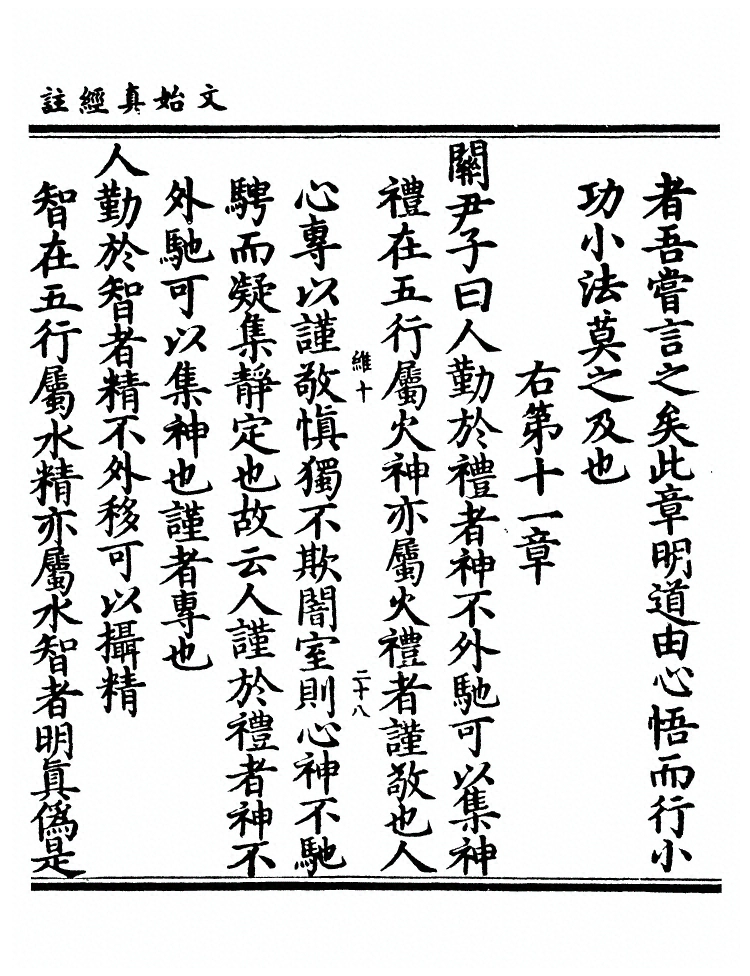 文始真經註
者吾嘗言之矣此章明道由心悟而行小
功小法莫之及也
右第十一章
關尹子曰人勤於禮者神不外馳可以集神
禮在五行屬火神亦屬火禮者謹敬也人
維十
二十八
心專以謹敬慎獨不欺闇室則心神不馳
騁而凝集靜定也故云人謹於禮者神不
外馳可以集神也謹者專也
人勤於智者精不外移可以攝精
智在五行屬水精亦屬水智者明眞偽是